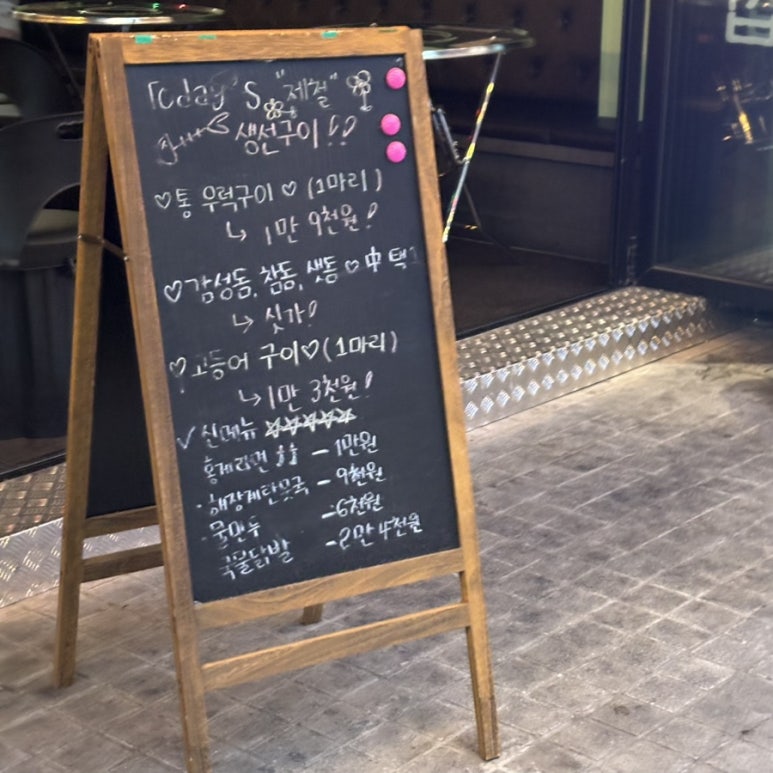 Today's "제철"
생선구이!!
♡통 우럭구이 ♡ (1마리)
↳ 1만 9천원!
♡감성돔, 참돔, 생돔 ♡ 中 택1
↳ 싯가!
♡고등어 구이♡(1마리)
↳ 1만 3천원!
✓신메뉴 ☆☆☆☆☆
홍게라면 - 1만원
· 해장계란국 - 9천원
· 물만두 - 6천원
국물닭발 - 2만 4천원